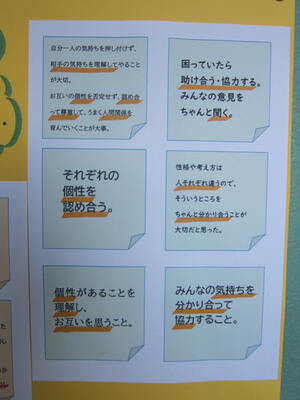 自分一人の気持ちを押し付けず、
相手の気持ちを理解してやること
が大切。
お互いの個性を否定せず、認め合
って尊重して、うまく人間関係を
育んでいくことが大事。
困っていたら
助け合う・協力する。
みんなの意見を
ちゃんと聞く。
それぞれの
個性を
認め合う。
性格や考え方は
人それぞれ違うので、
そういうところを
ちゃんと分かり合うことが
大切だと思った。
個性があることを
理解し、
お互いを思うこと。
みんなの気持ちを
分かり合って
協力すること。